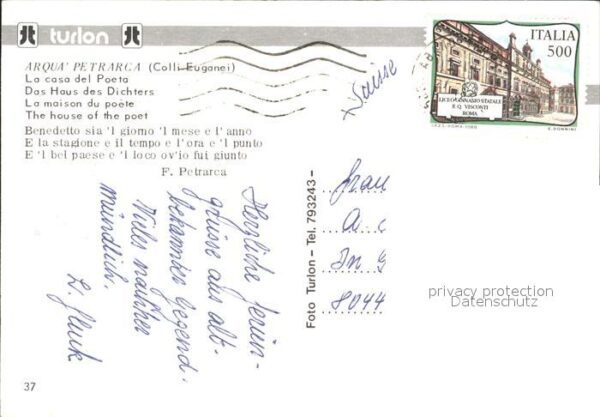 turlon
ARQUA' PETRARCA (Colli Euganei)
La casa del Poeta
Das Haus des Dichters
La maison du poète
The house of the poet
Benedetto sia 'l giorno 'l mese e l' anno
E la stagione e il tempo e l'ora e 'l punto
E 'l bel paese e 'l loco ov'io fui giunto
F. Petrarca
Herzliche Ferien-
grüsse aus alt-
bekannter Gegend.
Vieles nachher
mündlich.
Foto Turlon - Tel. 793243 -
Suisse
ITALIA
500
LICEO GINNASIO STATALE
E.Q. VISCONTI
ROMA
E. DONNINI
Frau
A c
In g
8044
privacy protection
Datenschutz
37